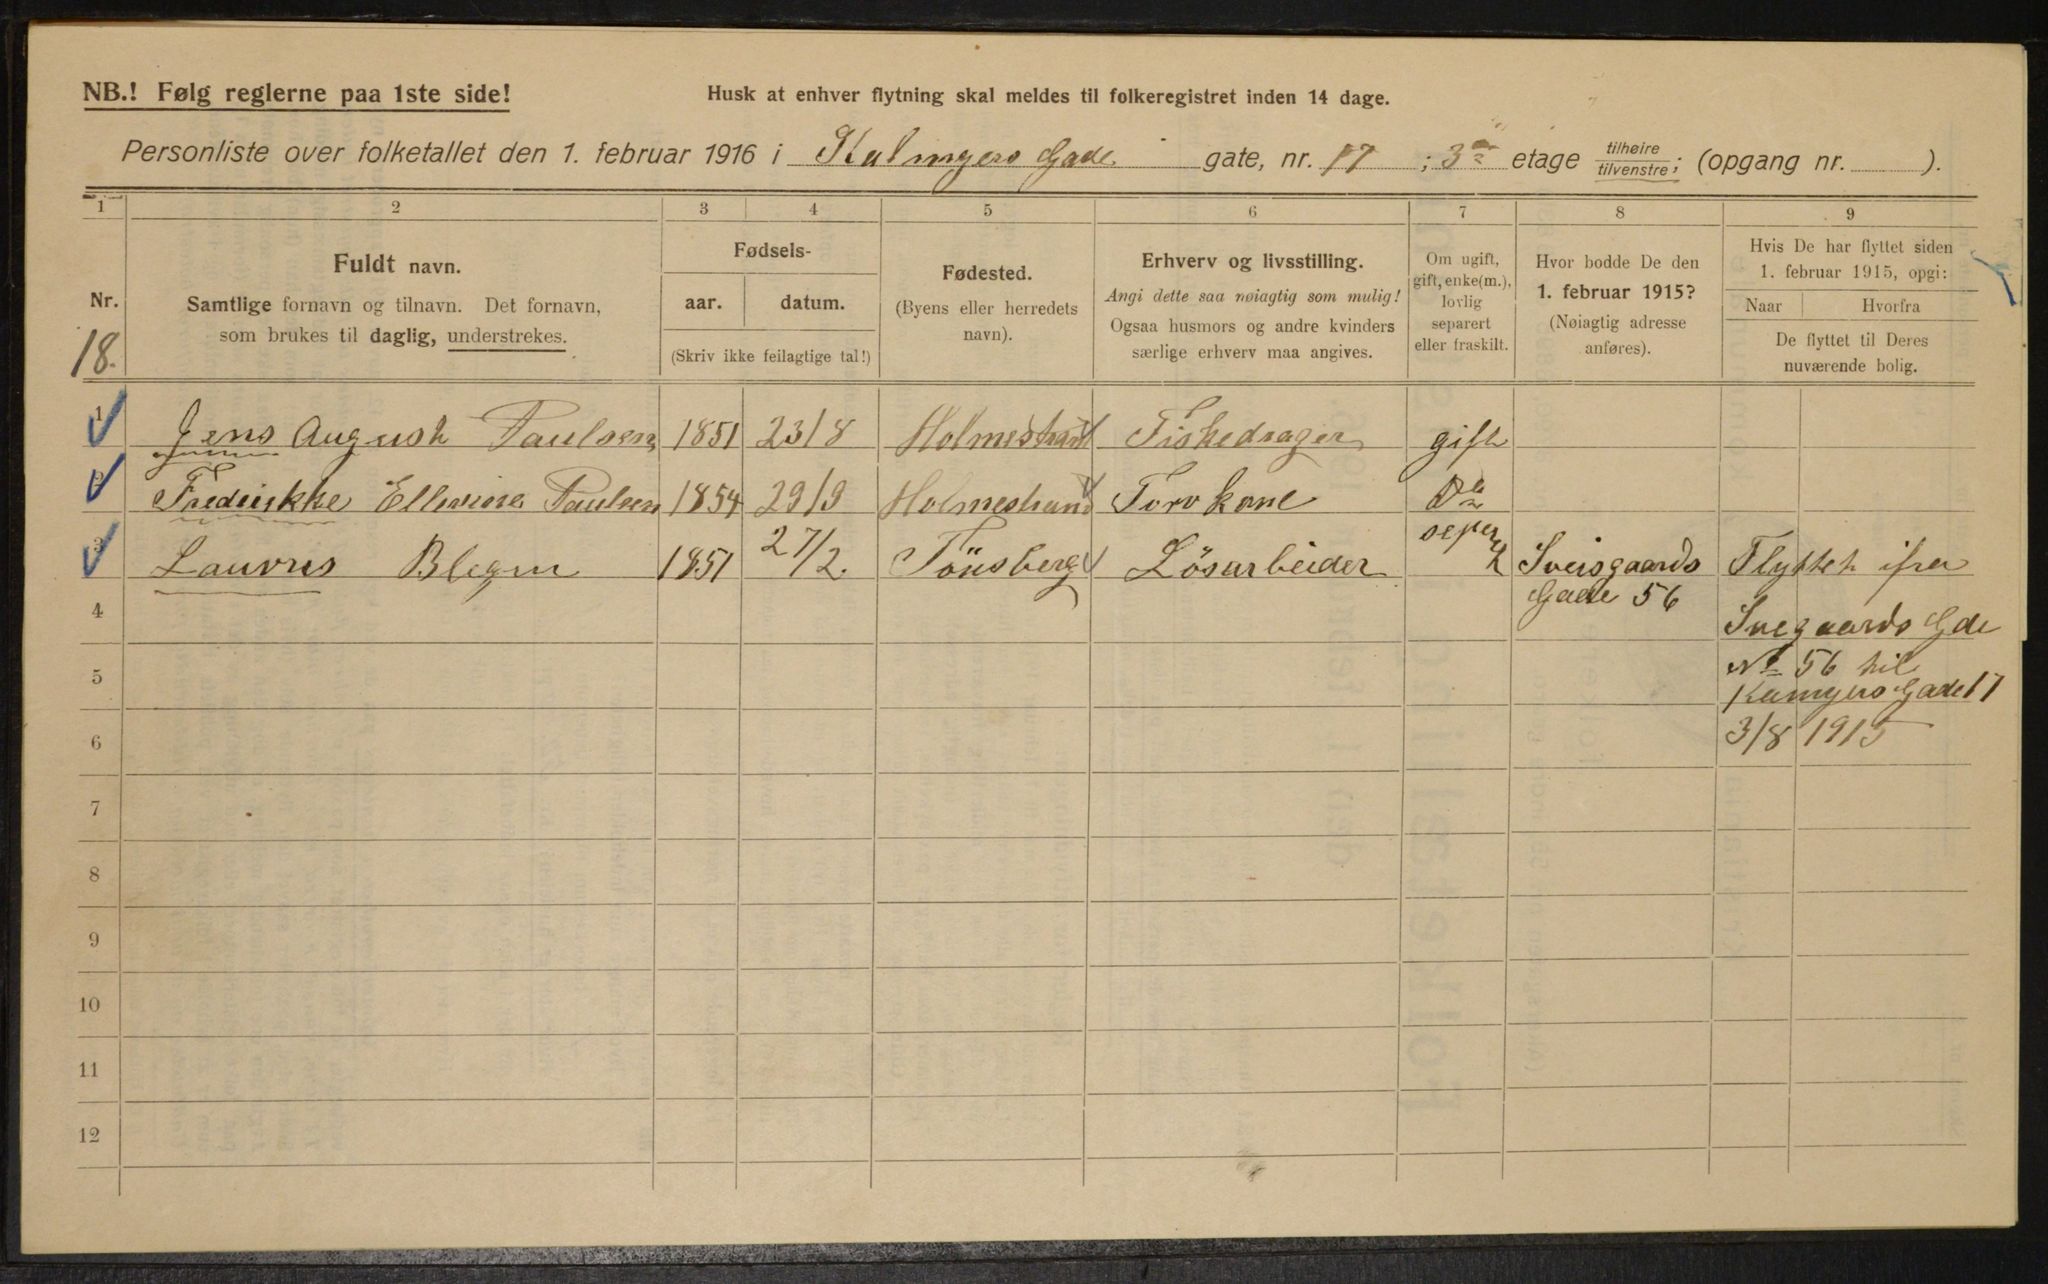 NB.! Følg reglerne paa 1ste side!
Husk at enhver flytning skal meldes til folkeregistret inden 14 dage.
Personliste over folketallet den 1. februar 1916 i Kalmeyers Gade gate, nr. 17 ; 3die etage tilhøire tilvenstre; (opgang nr. ).
1 2 3 4 5 6 7 8 9
Nr.
18.
Fuldt navn.
Samtlige fornavn og tilnavn. Det fornavn,
som brukes til daglig, understrekes.
Fødsels-
aar. datum.
(Skriv ikke feilagtige tal!)
Fødested.
(Byens eller herredets
navn).
Erhverv og livsstilling.
Angi dette saa nøiagtig som mulig!
Ogsaa husmors og andre kvinders
særlige erhverv maa angives.
Om ugift,
gift, enke(m.),
lovlig
separert
eller fraskilt.
Hvor bodde De den
1. februar 1915?
(Nøiagtig adresse
anføres).
Hvis De har flyttet siden
1. februar 1915, opgi:
Naar Hvorfra
De flyttet til Deres
nuværende bolig.
1 Jens August Paulsen 1851 23/8 Holmestrand Fiskedrager gift
2 Fredrikke Ellevine Paulsen 1854 29/9 Holmestrand Torvkone Do
3 Laurus Blegen 1851 27/2. Tönsberg Lösarbeider seper Sveisgaards Flyttet ifra
4 Gade 56 Svegaards Gde
5 No 56 til
Kamyers Gade 17
6 3/8 1915
7
8
9
10
11
12